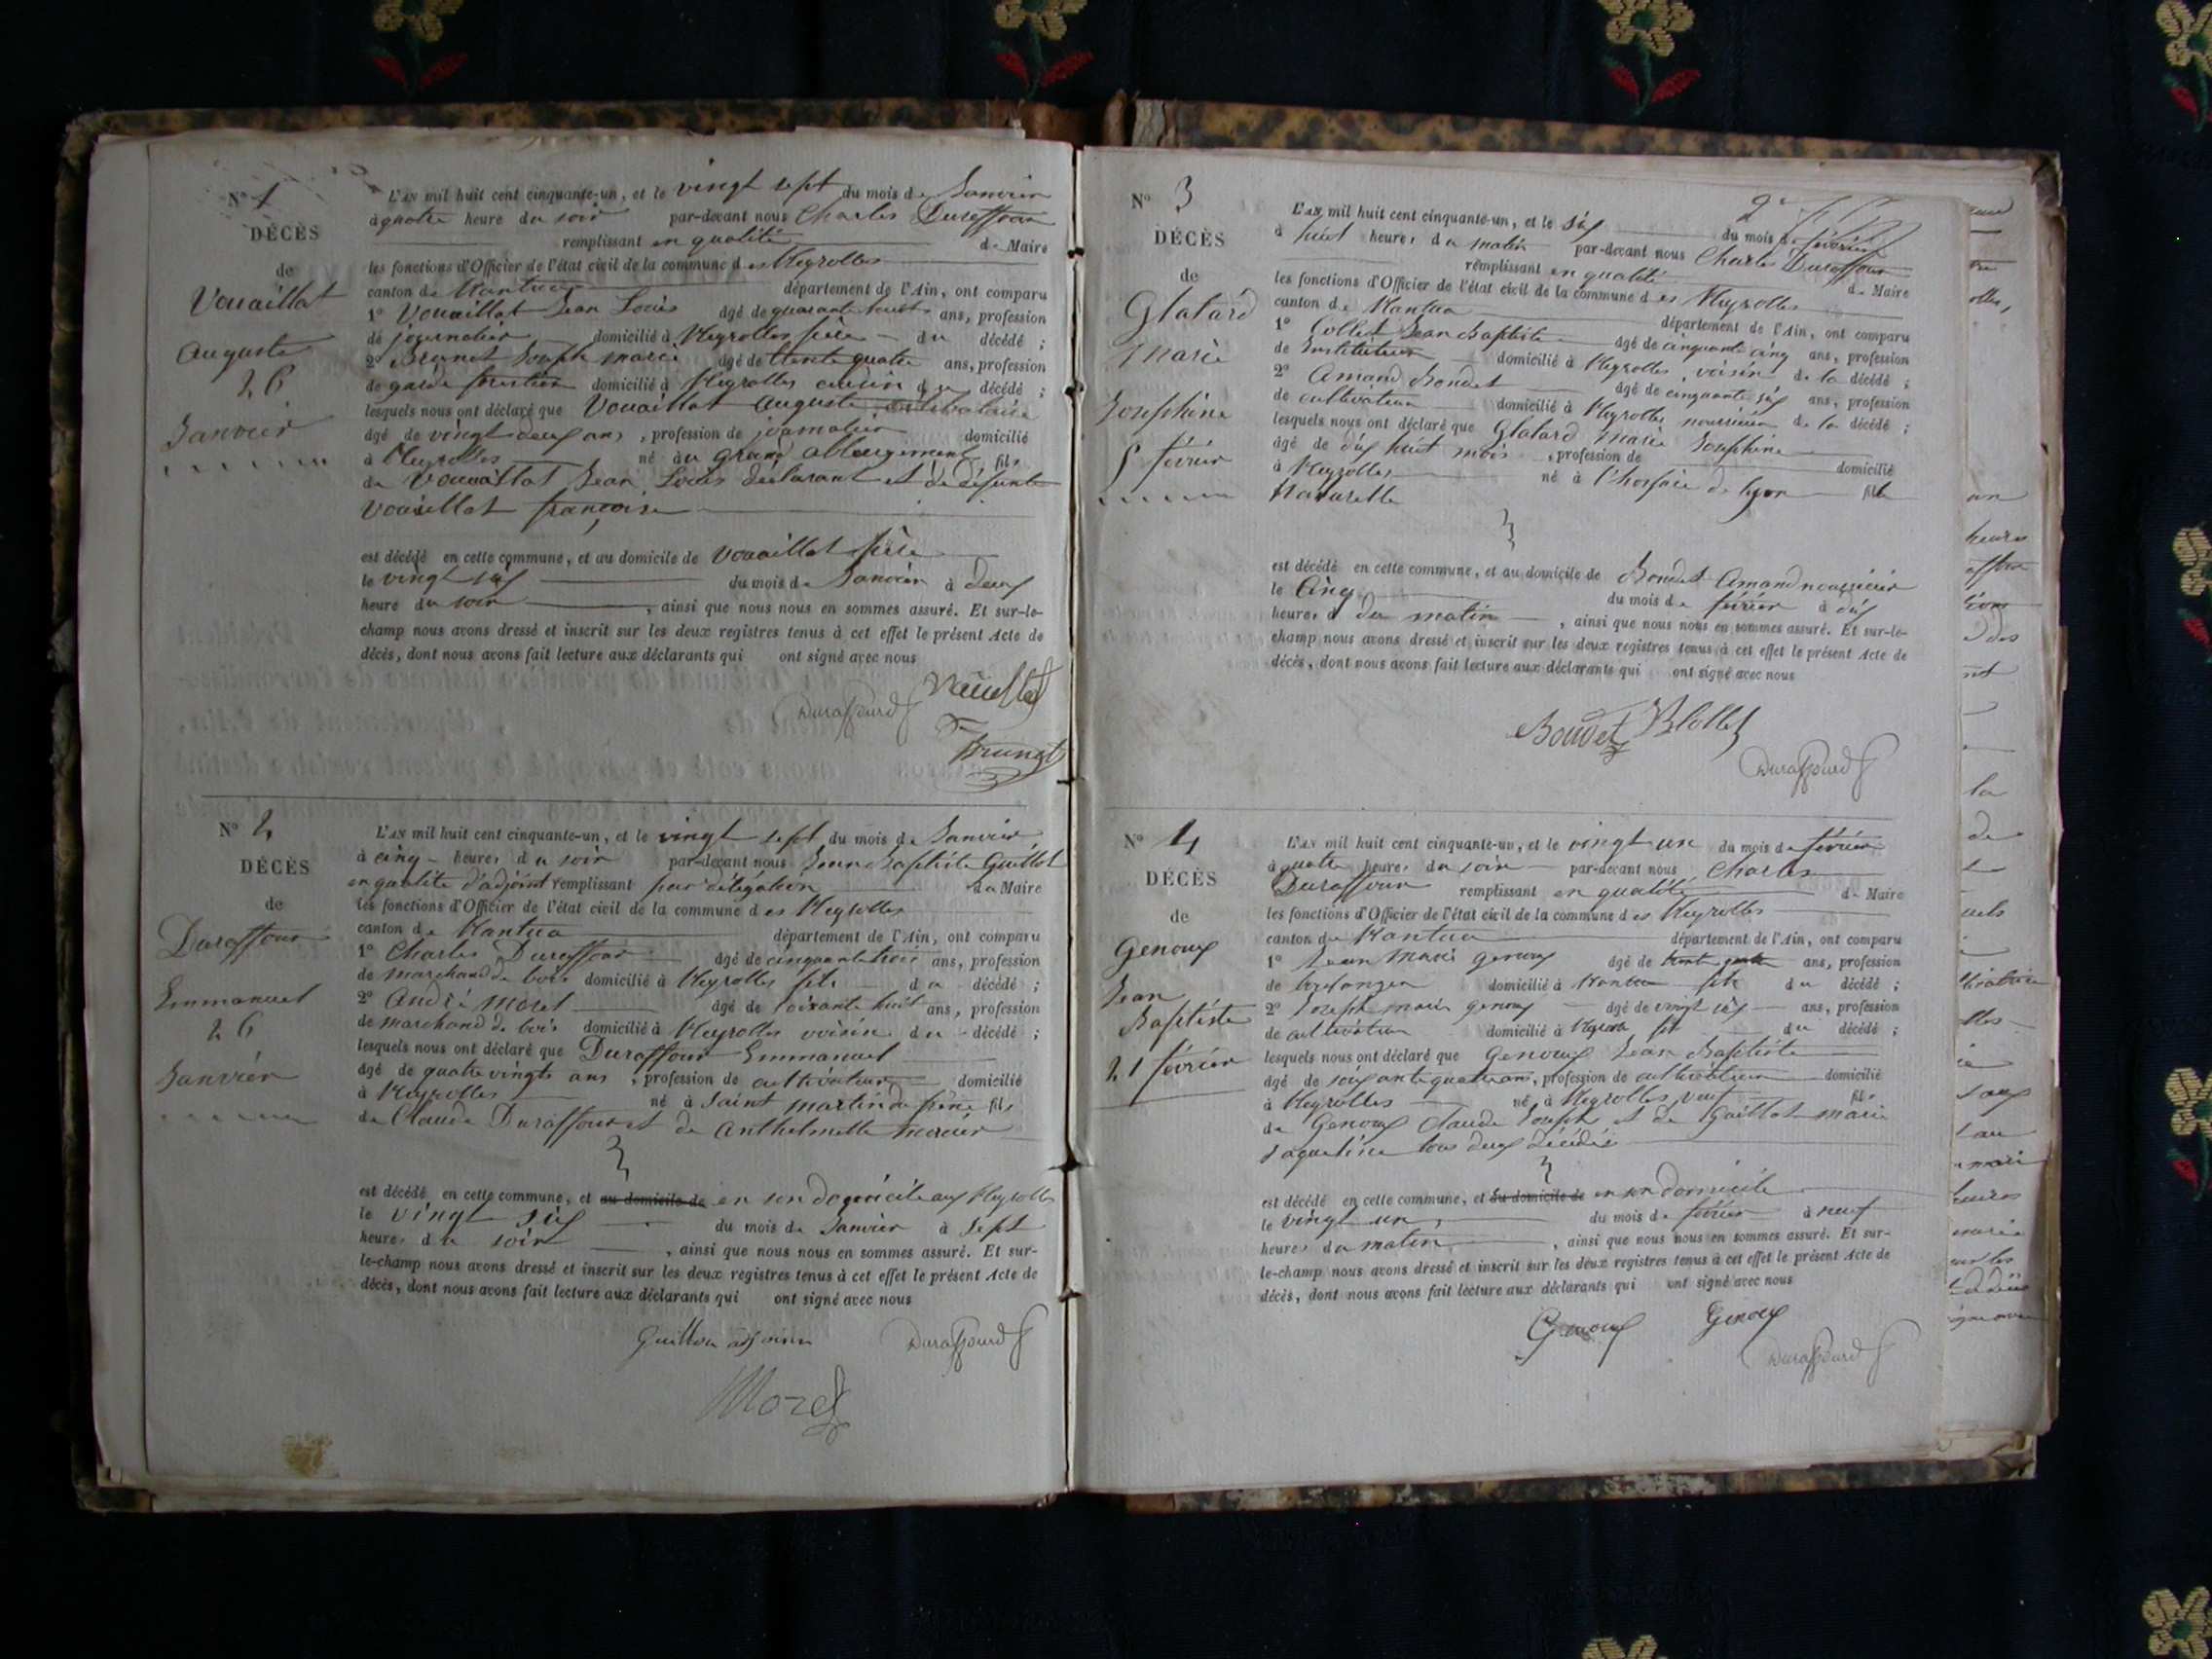 N° 1
DÉCÈS
de
Vouaillat
Auguste
26
Janvier
L'AN mil huit cent cinquante-un, et le vingt sept du mois de Janvier
à quatre heure du soir par-devant nous Charles Duraffour
remplissant en qualité de Maire
les fonctions d'Officier de l'état civil de la commune des Neyrolles
canton de Nantua département de l'Ain, ont comparu
1° Vouaillat Jean Louis âgé de quarante huit ans, profession
de journalier domicilié à Neyrolles père du décédé ;
2° Brunet Joseph marie âgé de trente quatre ans, profession
de garde forestier domicilié à Neyrolles voisin du décédé ;
lesquels nous ont déclaré que Vouaillat Auguste, célibataire
âgé de vingt deux ans, profession de journalier domicilié
à Neyrolles né au grand abbergement fils
de Vouaillat Jean Louis déclarant et de défunte
Vouaillat françoise
est décédé en cette commune, et au domicile de Vouaillat père
le vingt six du mois de Janvier à deux
heure du soir, ainsi que nous nous en sommes assuré. Et sur-le-
champ nous avons dressé et inscrit sur les deux registres tenus à cet effet le présent Acte de
décès, dont nous avons fait lecture aux déclarants qui ont signé avec nous
Duraffourd
Brunet
N° 2
DÉCÈS
de
Duraffour
Emmanuel
26
Janvier
L'AN mil huit cent cinquante-un, et le vingt sept du mois de Janvier
à cinq heures du soir par-devant nous Jean Baptiste Guillot
en qualité d'adjoint remplissant par délégation du Maire
les fonctions d'Officier de l'état civil de la commune des Neyrolles
canton de Nantua département de l'Ain, ont comparu
1° Charles Duraffour âgé de cinquante trois ans, profession
de marchand de bois domicilié à Neyrolles fils du décédé ;
2° André Morel âgé de soixante huit ans, profession
de marchand de bois domicilié à Neyrolles voisin du décédé ;
lesquels nous ont déclaré que Duraffour Emmanuel
âgé de quatre vingts ans, profession de cultivateur domicilié
à Neyrolles né à Saint martin du frène fils
de Claude Duraffour et de Anthelmette mercier
est décédé en cette commune, et au domicile de en son domicile aux Neyrolles
le vingt six du mois de Janvier à sept
heures du soir, ainsi que nous nous en sommes assuré. Et sur-
le-champ nous avons dressé et inscrit sur les deux registres tenus à cet effet le présent Acte de
décès, dont nous avons fait lecture aux déclarants qui ont signé avec nous
Duraffourd
Morel
N° 3
DÉCÈS
de
Glatard
Marie
Josephine
5 février
L'AN mil huit cent cinquante-un, et le six du mois de février
à huit heures du matin par-devant nous Charles Duraffour
remplissant en qualité de Maire
les fonctions d'Officier de l'état civil de la commune des Neyrolles
canton de Nantua département de l'Ain, ont comparu
1° Collet Jean Baptiste âgé de cinquante cinq ans, profession
de Instituteur domicilié à Neyrolles, voisin de la décédé ;
2° Amand Bondet âgé de cinquante six ans, profession
de cultivateur domicilié à Neyrolles nourricier de la décédé ;
lesquels nous ont déclaré que Glatard Marie Josephine
âgé de dix huit mois, profession de domicilié
à Neyrolles né à l'hospice de Lyon fille
Naturelle
est décédé en cette commune, et au domicile de Bondet Amand nourricier
le cinq du mois de février à dix
heures du matin, ainsi que nous nous en sommes assuré. Et sur-le-
champ nous avons dressé et inscrit sur les deux registres tenus à cet effet le présent Acte de
décès, dont nous avons fait lecture aux déclarants qui ont signé avec nous
Bondet
Duraffourd
N° 4
DÉCÈS
de
Genoux
Jean
Baptiste
21 février
L'AN mil huit cent cinquante-un, et le vingt un du mois de février
à quatre heures du soir par-devant nous Charles
Duraffour remplissant en qualité de Maire
les fonctions d'Officier de l'état civil de la commune des Neyrolles
canton de Nantua département de l'Ain, ont comparu
1° Jean Marie Genoux âgé de trente quatre ans, profession
de boulanger domicilié à Nantua fils du décédé ;
2° Joseph marie Genoux âgé de vingt six ans, profession
de cultivateur domicilié à Neyrolles fils du décédé ;
lesquels nous ont déclaré que Genoux Jean Baptiste
âgé de soixante quatre ans, profession de cultivateur domicilié
à Neyrolles né à Neyrolles, veuf fils
de Genoux Claude Joseph et de Guillot marie
Jaqueline tous deux décédés
est décédé en cette commune, et au domicile de en son domicile
le vingt un, du mois de février à neuf
heures du matin, ainsi que nous nous en sommes assuré. Et sur-
le-champ nous avons dressé et inscrit sur les deux registres tenus à cet effet le présent Acte de
décès, dont nous avons fait lecture aux déclarants qui ont signé avec nous
Genoux Genoux
Duraffourd